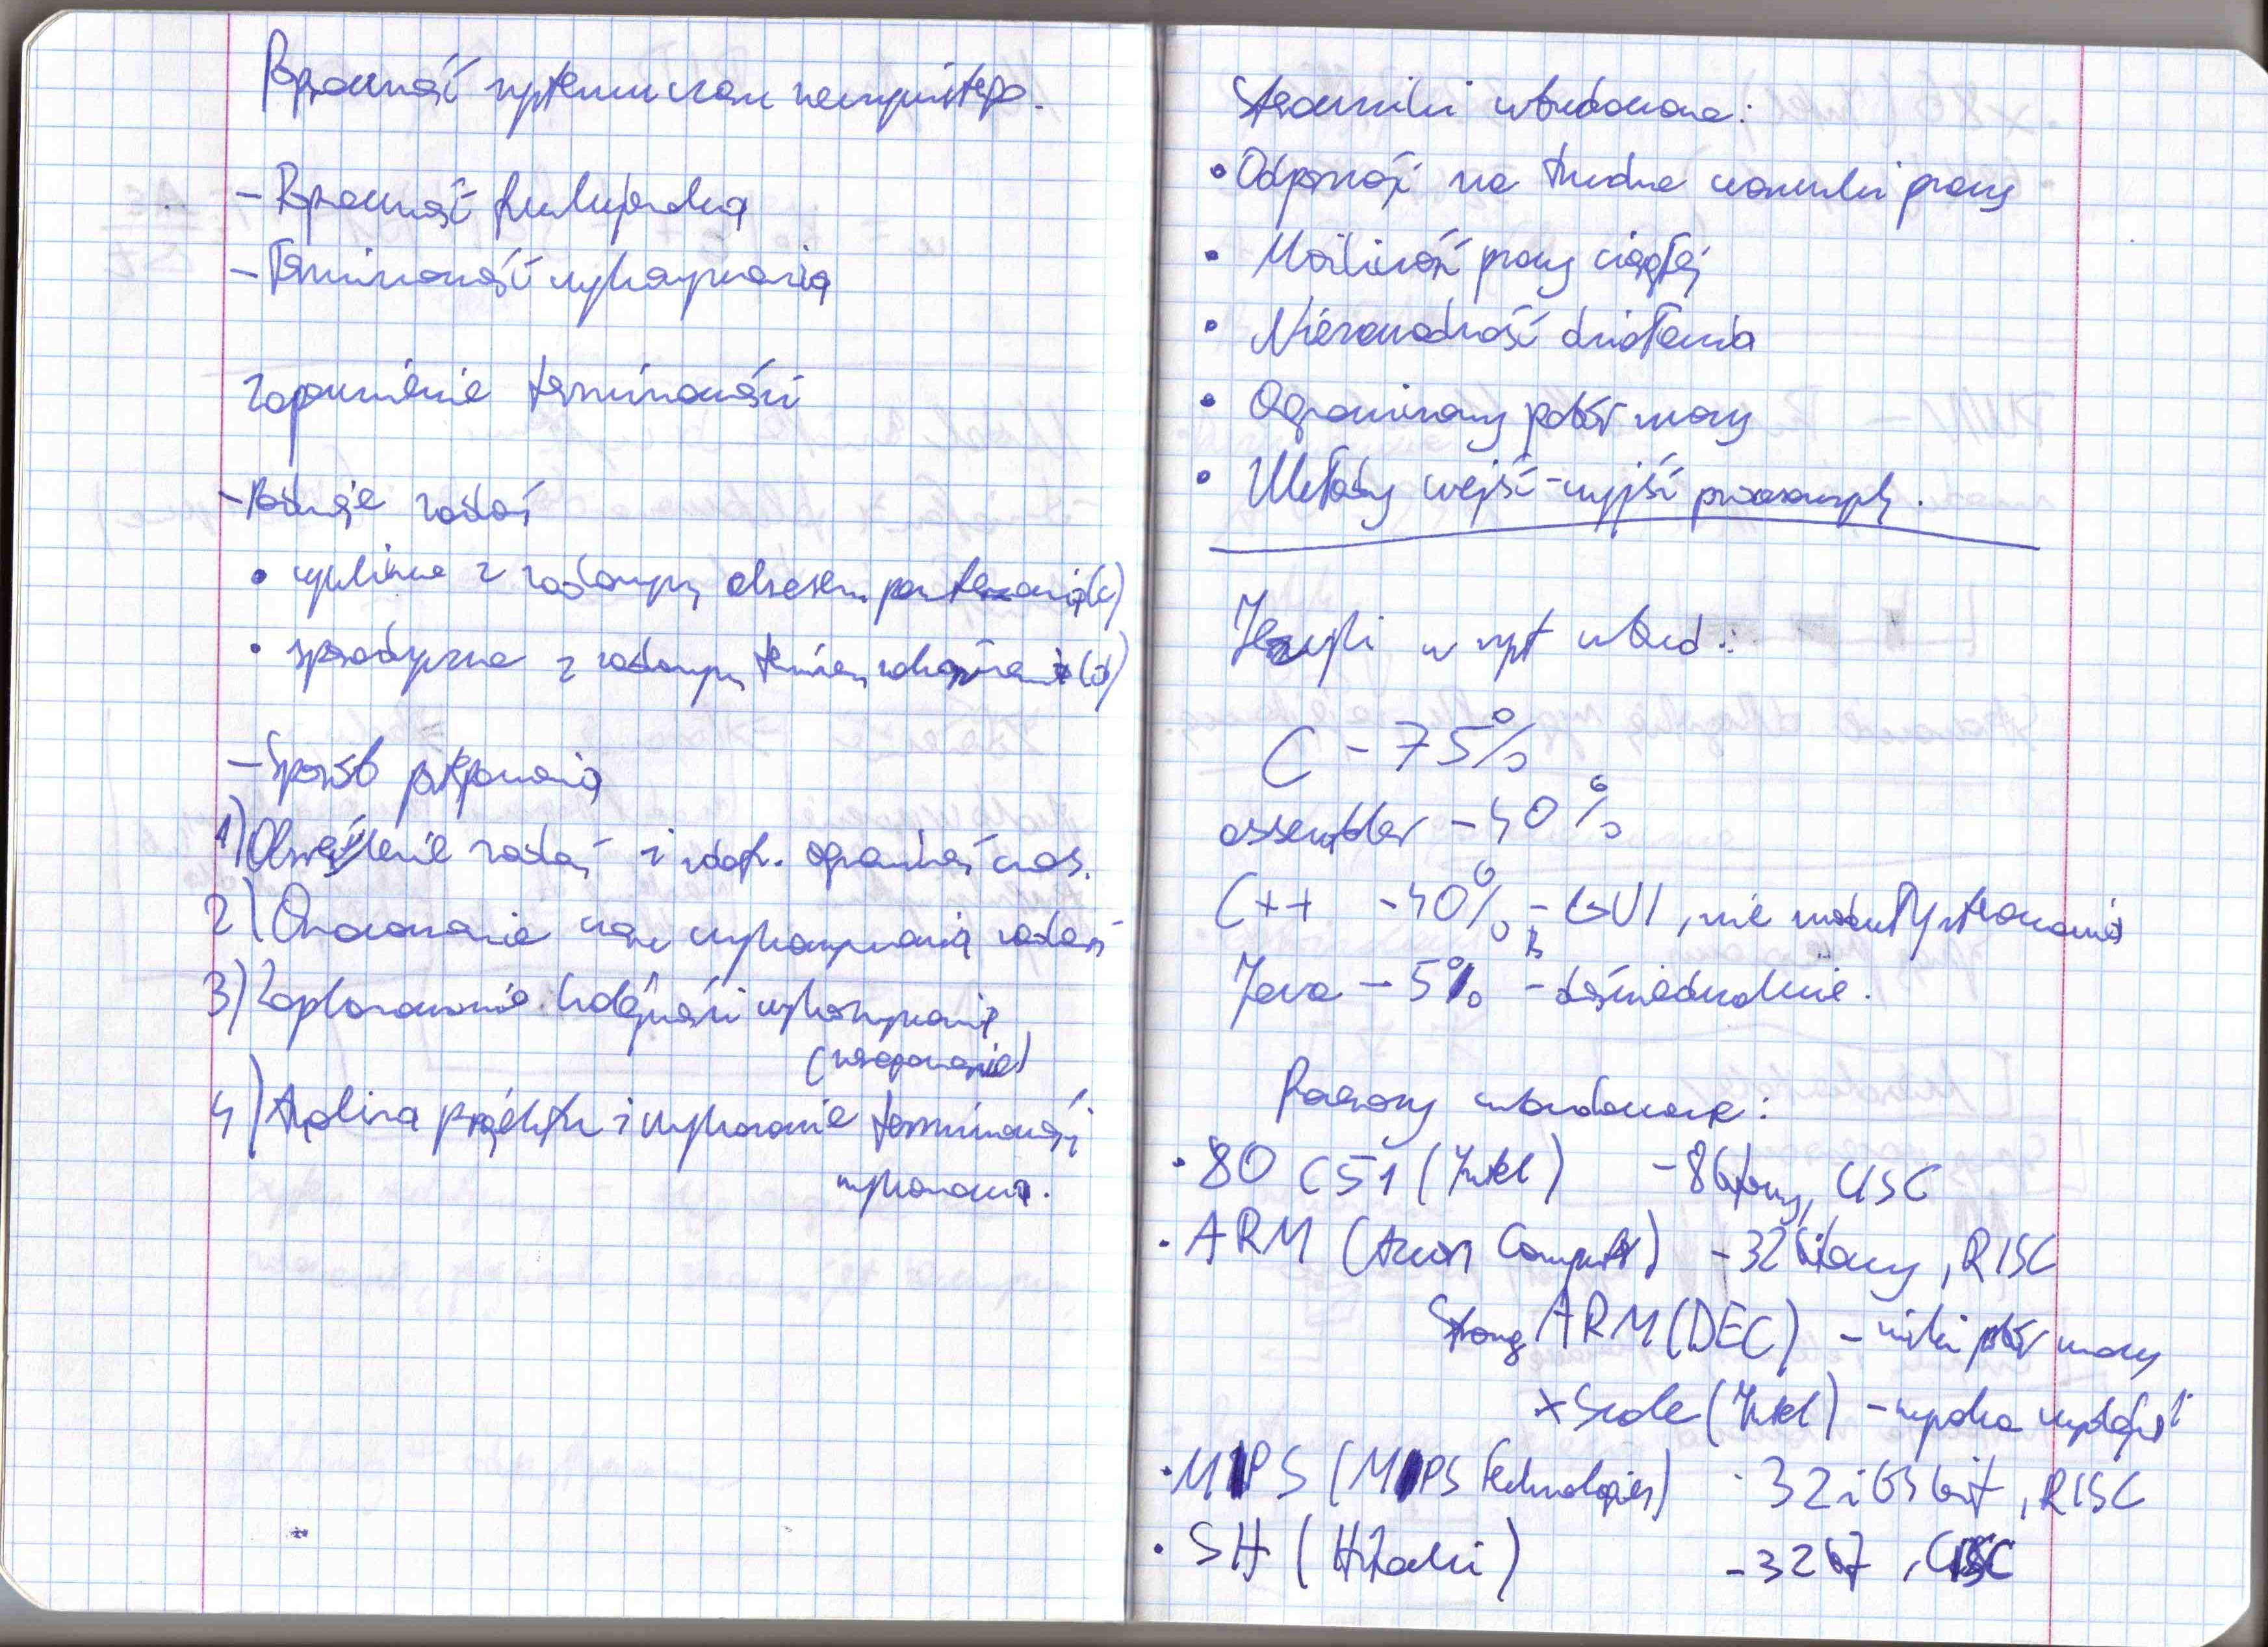 Poprawność systemu czasu rzeczywistego.
- Poprawność funkcjonalna
- Terminowość wykonywania
Zapewnienie terminowości
- Rodzaje zadań
• cykliczne z zadanym okresem powtarzania (c)
• sporadyczne z zadanym termin. zakończenia (d)
- Sposób postępowania
1) Określenie zadań i ogranicz. czas.
2) Oszacowanie czasu wykonywania zadań
3) Zaplanowanie kolejności wykonywania
(szeregowanie)
4) Analiza projektu i wykazanie terminowości
wykonania.
Sterowniki wbudowane:
• Odporność na trudne warunki pracy
• Możliwość pracy ciągłej
• Niezawodność działania
• Ograniczony pobór mocy
• Układy wejść-wyjść procesowych.
Języki w syst wbud.:
C - 75%
assembler - 40%
C++ - 40% - GUI, nie moduły sterowania
Java - 5% - doświadczalnie.
Procesory wbudowane:
• 80 C51 (Intel) - 8 bitowy, CISC
• ARM (Acorn Computer) - 32 bitowy, RISC
Strong ARM (DEC) - niski pobór mocy
xScale (Intel) - wysoka wydajność
• MIPS (MIPS Technologies) - 32 i 64 bit, RISC
• SH (Hitachi) - 32 bit, CISC